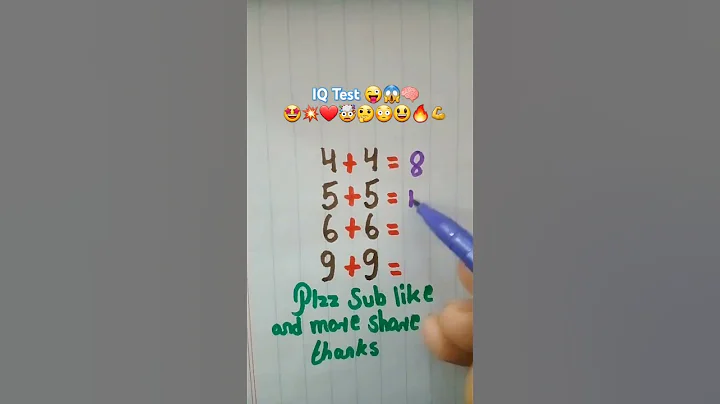 IQ Test 😜😱🧠
🤩💥❤️🤯🤔😳😃🔥💪
4+4=8
5+5=1
6+6=
9+9=
Plzz Sub like
and more share
thanks